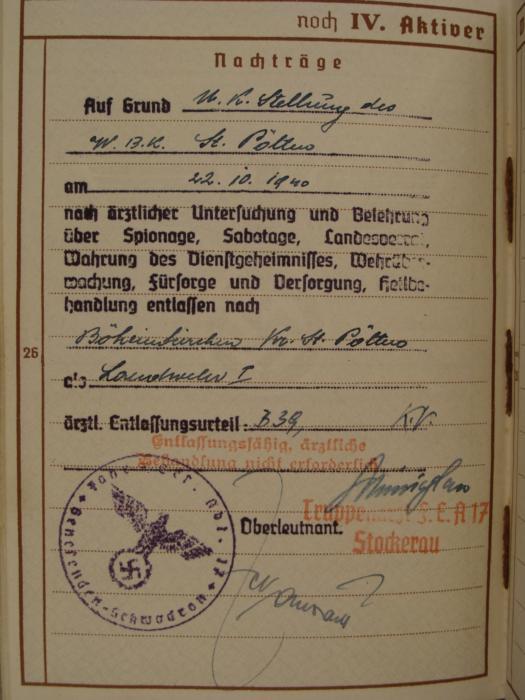 noch IV. Aktiver
Nachträge
Auf Grund U. K. Stellung des
W. B. K. St. Pölten
am 22. 10. 1940
nach ärztlicher Untersuchung und Belehrung
über Spionage, Sabotage, Landesverrat,
Wahrung des Dienstgeheimnisses, Wehrüber-
wachung, Fürsorge und Versorgung, Heilbe-
handlung entlassen nach
Böheimkirchen Kr. St. Pölten
26
als Landwehr I
ärztl. Entlassungsurteil: B 39, K.V.
Entlassungsfähig, ärztliche
Behandlung nicht erforderlich
Oberleutnant.
Truppenarzt F. E. A 17
Stockerau
Fahr Ers. Abt. 17
Genesenden-Schwadron